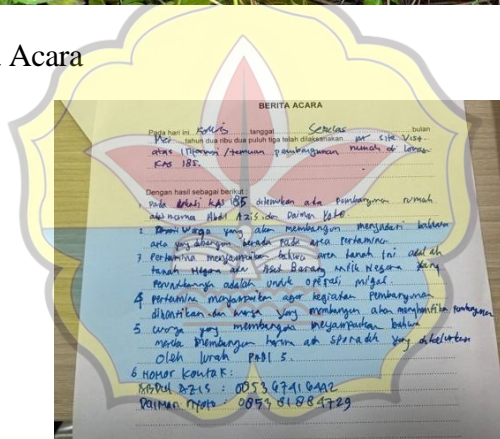 Acara
BERITA ACARA
Pada hari ini Kamis tanggal Sebelas bulan
Mei tahun dua ribu dua puluh tiga telah dilaksanakan site Visit
atas Informasi / temuan pembangunan rumah di lokasi
KAS 185.
Dengan hasil sebagai berikut :
1. Pada lokasi KAS 185 ditemukan ada Pembangunan rumah
atas nama Abdul Azis dan Daiman
2. Warga yang akan membangun menyadari bahwa
area yang dibangun berada Pada area Pertamina.
3. Pertamina menyampaikan bahwa area tanah ini adalah
tanah Negara Barang milik Negara yang
adalah untuk operasi migas.
4 pertamina menyampaikan agar kegiatan Pembangunan
dihentikan dan warga yang membangun akan menghentikan
5. warga yang membangun menyampaikan bahwa
membangun karena ada sporadik yang dikeluarkan
Oleh lurah PAAL 5.
6 NOMOR KONTAK :
ABDUL AZIS : 0853 6741 6442
Daiman : 0853 8188 4729